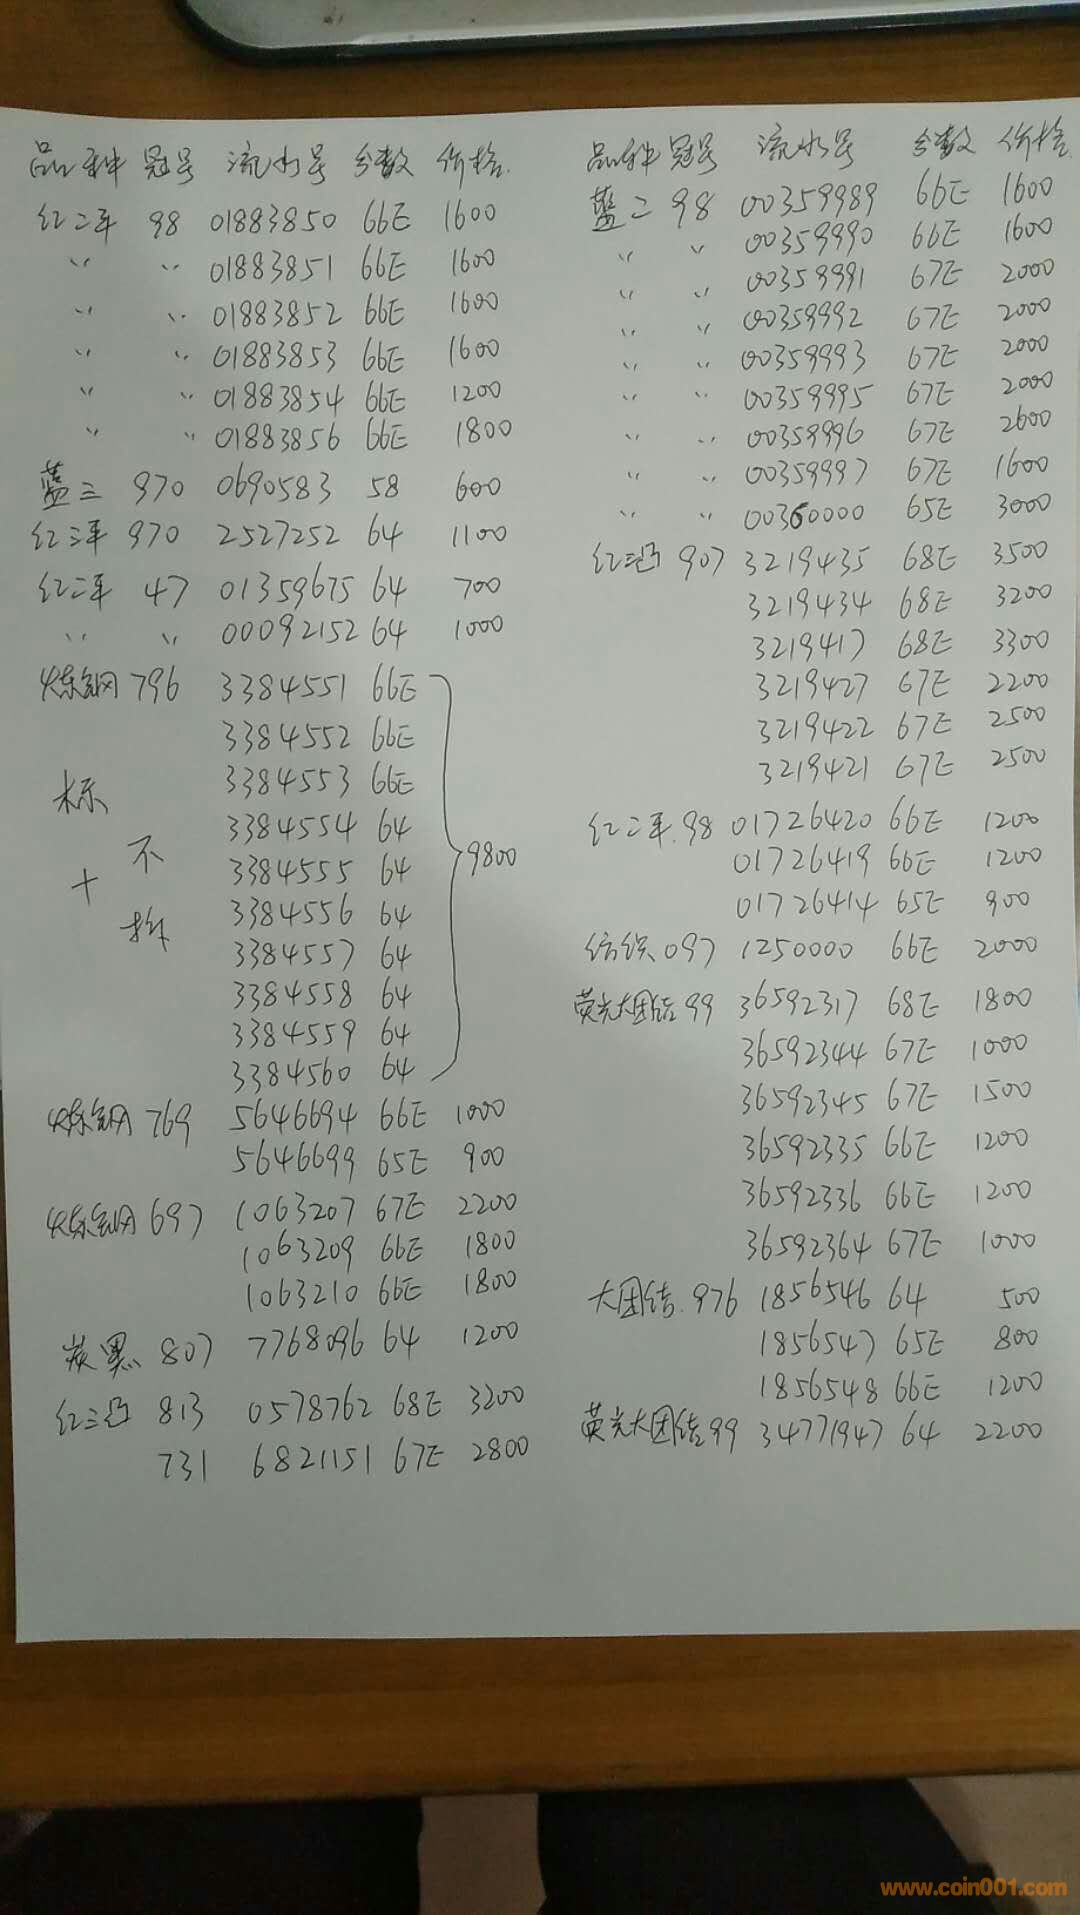 品种 冠号 流水号 分数 价格
红二平 98 01883850 66E 1600
〃 〃 01883851 66E 1600
〃 〃 01883852 66E 1600
〃 〃 01883853 66E 1600
〃 〃 01883854 66E 1200
〃 〃 01883856 66E 1800
蓝三 970 0690583 58 600
红三平 970 2527252 64 1100
红二平 47 01359675 64 700
〃 〃 00092152 64 1000
炼钢 796 3384551 66E
3384552 66E
3384553 66E
3384554 64
3384555 64
3384556 64
3384557 64
3384558 64
3384559 64
3384560 64
9800
标十
不拆
炼钢 769 5646694 66E 1000
5646699 65E 900
炼钢 697 1063207 67E 2200
1063209 66E 1800
1063210 66E 1800
炭黑 807 7768096 64 1200
红三凸 813 0578762 68E 3200
731 6821151 67E 2800
品种 冠号 流水号 分数 价格
蓝二 98 00359989 66E 1600
〃 〃 00359990 66E 1600
〃 〃 00359991 67E 2000
〃 〃 00359992 67E 2000
〃 〃 00359993 67E 2000
〃 〃 00359995 67E 2000
〃 〃 00359996 67E 2600
〃 〃 00359997 67E 1600
〃 〃 00360000 65E 3000
红三凸 907 3219435 68E 3500
3219434 68E 3200
3219417 68E 3300
3219427 67E 2200
3219422 67E 2500
3219421 67E 2500
红二平 98 01726420 66E 1200
01726419 66E 1200
01726414 65E 900
纺织 097 1250000 66E 2000
荧光大团结 99 36592317 68E 1800
36592344 67E 1000
36592345 67E 1500
36592335 66E 1200
36592336 66E 1200
36592364 67E 1000
大团结 976 1856546 64 500
1856547 65E 800
1856548 66E 1200
荧光大团结 99 34771947 64 2200
www.coin001.com